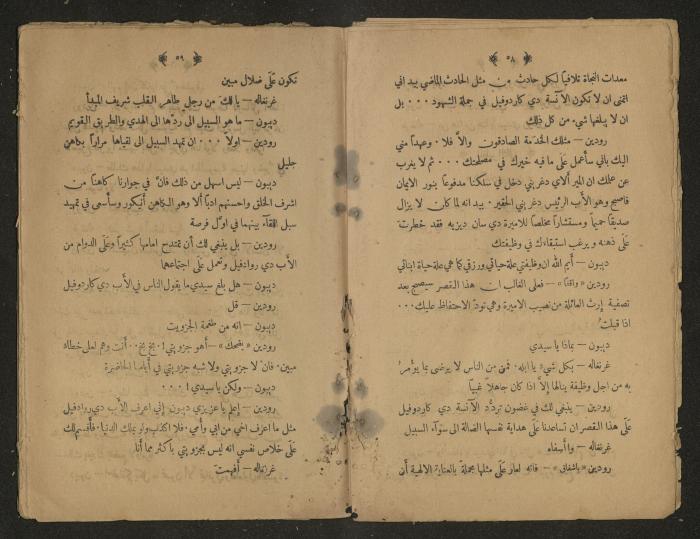 ﴿ ٥٨ ﴾
معدات النجاة تلافيًا لكل حادث من مثل الحادث الماضي بيد اني
اتمنى ان لا تكون الآنسة دي كاردوفيل في جملة الشهود ٠٠٠ بل
ان لا يبلغها شيء من كل ذلك
رودين — مثلك الخدمة الصادقون والّا فلا ٠ وعهدًا مني
اليك باني سأعمل على ما فيه خيرك في مصلحتك ٠٠٠ ثم لا يغرب
عن علمك ان المير ألاي دغربني دخل في سلكنا مدفوعًا بنور الايمان
فاصبح وهو الأب الرئيس دغربني الحقير ٠ بيد انه لما كان لا يزال
صديقًا حميمًا ومستشارًا مخلصًا للاميرة دي سان ديزيه فقد خطرت
على ذهنه ويرغب استبقاءك في وظيفتك
ديبون — أيم الله ان وظيفتي علة حياتي ورزقي كما هي علة حياة ابنائي
رودين «واقفًا» — فعلى الغالب ان هذا القصر سيصبح بعد
تصفية إرث العائلة من نصيب الاميرة وهي تودّ الاحتفاظ عليك ٠٠٠
اذا قبلتَ
ديبون — بماذا يا سيدي
غرنغاله — بكل شيء يا ابله ٠ فمن من الناس لا يرضى بما يؤمرُ
به من اجل وظيفة ينالها إلّا اذا كان جاهلًا غبيًا
رودين — ينبغي لك في غضون تردُّد الآنسة دي كاردوفيل
على هذا القصر ان تساعدنا على هداية نفسها الضالة الى سواء السبيل
غرنغاله — واأسفاه
رودين «باشفاق» — فانه لعار على مثلها مجملة بالعناية الالهية أن
﴿ ٥٩ ﴾
تكون على ضلال مبين
غرنغاله — يا لك من رجل طاهر القلب شريف المبدأ
ديبون — ما هو السبيل الى ردّها الى الهدي والطريق القويم
رودين — اولًا ٠٠٠ ان تمهد السبيل الى لقياها مرارًا بكاهن
جليل
ديبون — ليس اسهل من ذلك فانَّ في جوارنا كاهنًا من
اشرف الخلق واحسنهم ادبًا ألا وهو الكاهن أنيكور وسأسعى في تمهيد
سبل اللقاء بينهما في اوّل فرصة
رودين — بل ينبغي لك أن تمتدح امامها كثيرًا وعلى الدوام من
الأب دي روادفيل وتعمل على اجتماعها
ديبون — هل بلغ سيدي ما يقول الناس في الأب دي كاردوفيل
رودين — قل
ديبون — انه من طغمة الجزويت
رودين «يضحك» — أهو جزويتي ! بخ بخ ٠٠ أنت وهم لعلى خطاه
مبين ٠ فان لا جزويتي ولا شبه جزويتي في أيامنا الحاضرة
ديبون — ولكن يا سيدي ! ٠٠٠
رودين — إعلم يا عزيزي ديبون : إني اعرف الأب دي روادفيل
مثل ما اعرف اخي من ابي وأمي ٠ فلا اكذب ولو بملك الدنيا ٠ فأقسم لك
على خلاص نفسي انه ليس بجزويتي باكثر مما أنا
غرنغاله — أفهمت